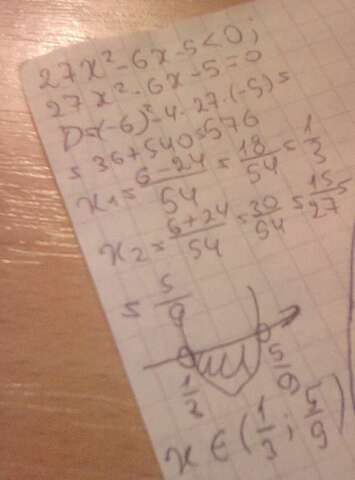 27x² - 6x - 5 < 0;
27x² - 6x - 5 = 0
D = (-6)² - 4 · 27 · (-5) =
= 36 + 540 = 576
x₁ = (6 - 24)/54 = 18/54 = 1/3
x₂ = (6 + 24)/54 = 30/54 = 15/27 =
= 5/9
1/3 5/9
x ∈ (1/3; 5/9)